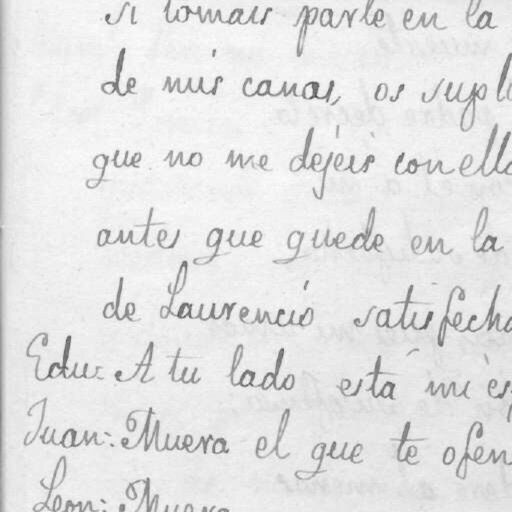 si tomais parte en la
de mis canas, os supl
que no me dejéis con ella
antes que quede en la
de Laurencio satisfecha
Edu: A tu lado está mi es
Juan: Muera el que te ofen
Leon: Muera